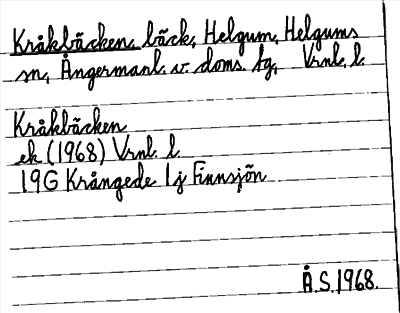 Kråkbäcken, bäck, Helgum, Helgums
sn, Ångermanl. v. doms. fg, Vrnl. l.
Kråkbäcken
ek (1968) Vrnl. l
19G Krångede 1j Finnsjön
Å.S. 1968.